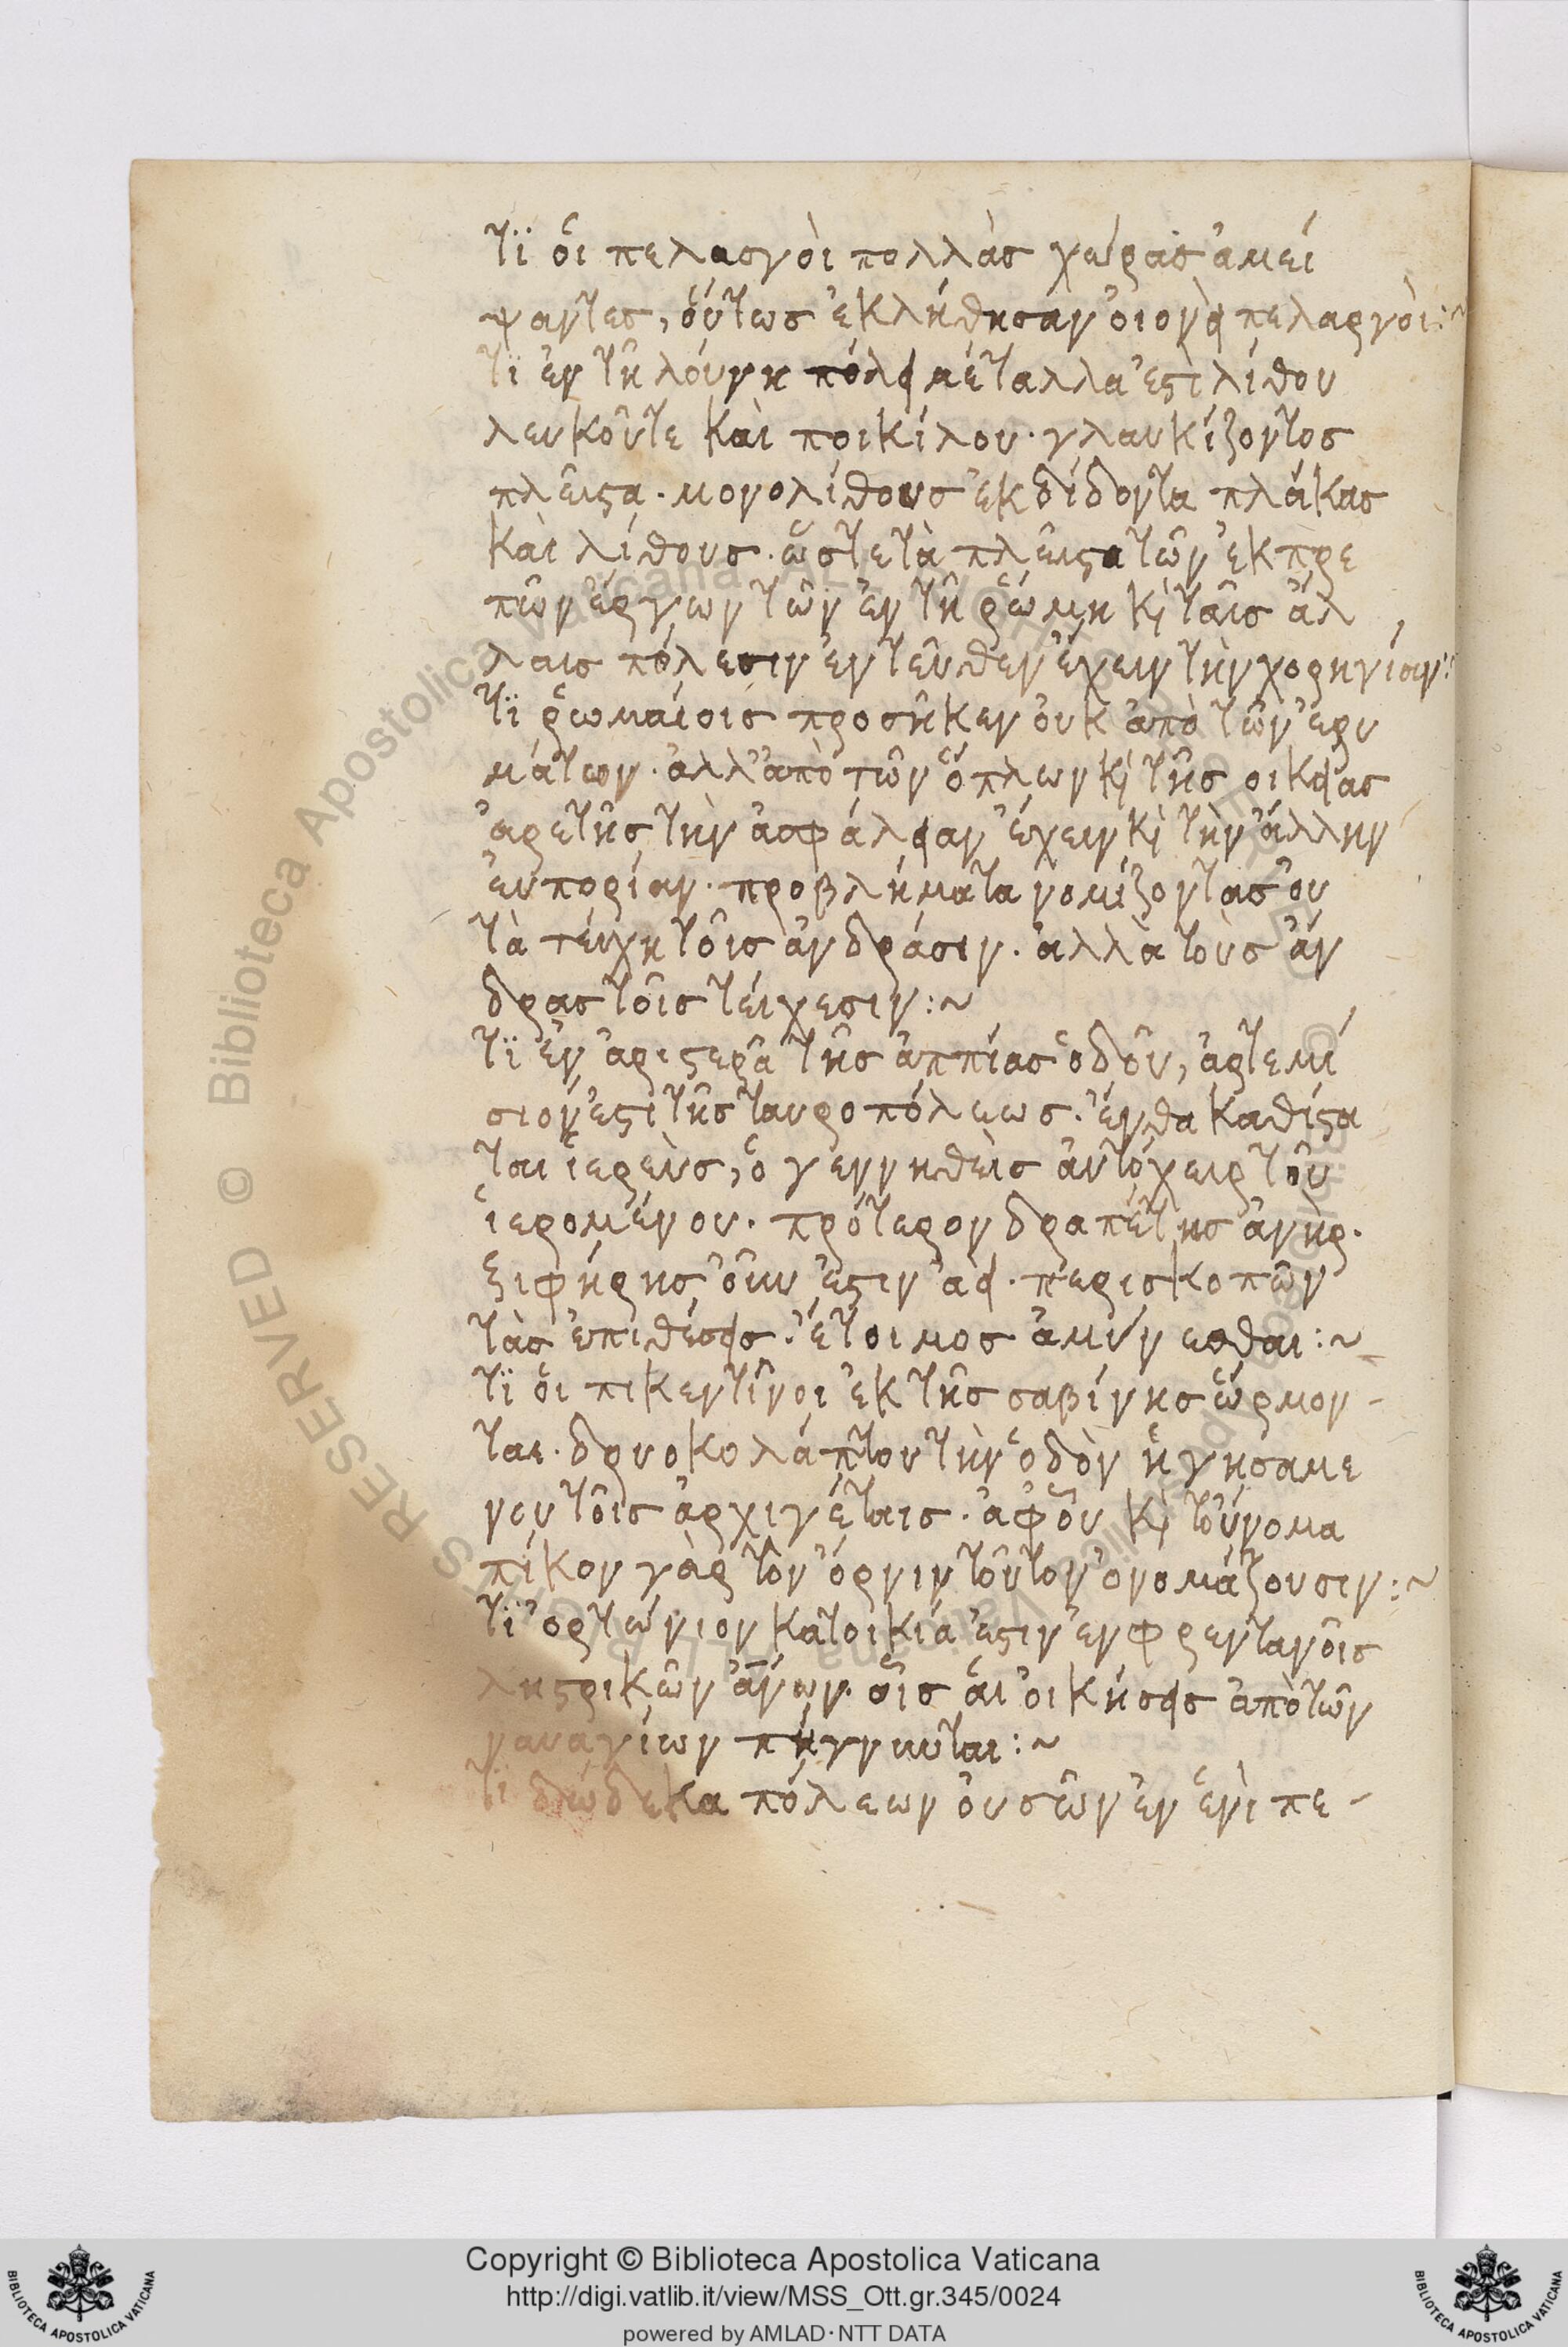 τϊ ὁι πελασγὸι πολλὰσ χώρασ ἀμεί
ψαντεσ, ὅυτωσ ἐκλήθησαν ὁιονεὶ πελαργόι:~
τϊ ἐν τῆ λόυνη πόλει μέταλλα ἐςὶ λίθου
λευκοῦτε καὶ ποικίλου· γλαυκίζοντοσ
πλεῖςα· μονολίθουσ ἐκδίδοντα πλάκασ
κὰι λίθουσ· ὥστε τὰ πλεῖςα τῶν ἐκπρε
πῶν ἔργων τῶν ἐν τῆ ῥώμη κὶ τᾶισ ἄλ
λαισ πόλεσιν ἐντεῦθεν ἔχειν τὴν χορηγίαν:
τϊ ῥωμαίοισ προσῆκεν ὀυκ ἀπὸ τῶν ἐρυ
μάτων· ἀλλ' ἀπὸ τῶν ὅπλων κὶ τῆσ οικείασ
ἀρετῆσ τὴν ἀσφάλειαν ἔχειν κὶ τὴν ἄλλην
ἐυπορίαν· προβλήματα νομίζοντασ ὀυ
τὰ τείχη τοῖσ ἀνδράσιν· ἀλλὰ τοὺσ ἄν
δρασ τοῖσ τείχεσιν:~
τϊ ἐν ἀριςερᾶ τῆσ ἀππίασ ὁδοῦ, ἀρτεμί
σιόν ἐςι τῆσ ταυροπόλεωσ· ἔνθα καθίςα
ται ἱερεὺσ, ὁ γεννηθεὶσ ἀυτόχειρ τοῦ
ἱερομένου· πρότερον δραπέτησ ἀνὴρ·
ξιφήρησ οὖν ἐςιν ἀεὶ· περισκοπῶν
τὰσ ἐπιθέσεισ· ἕτοιμοσ ἀμύνεσθαι:~
τϊ ὁι πικεντῖνοι ἐκ τῆσ σαβίνησ ὥρμον-
ται· δρυοκολάπτου τὴν ὁδὸν ἡγησαμε
νου τοῖσ ἀρχιγέταισ· ἀφ' οὗ κὶ τοὔνομα
πίκον γὰρ τὸν ὄρνιν τοῦτον ὀνομάζουσιν:~
τϊ ὀρτώνιον κατοικιά ἐςιν ἐν φρεντανοῖσ
ληςρικῶν ἀνων· οἷσ ἁι ὀικήσεισ ἀπὸ τῶν
ναυαγίων πήγνυνται:~
τϊ δώδεκα πόλεων ὀυσῶν ἐν ἑνὶ πε-
Copyright © Biblioteca Apostolica Vaticana
http://digi.vatlib.it/view/MSS_Ott.gr.345/0024
powered by AMLAD·NTT DATA